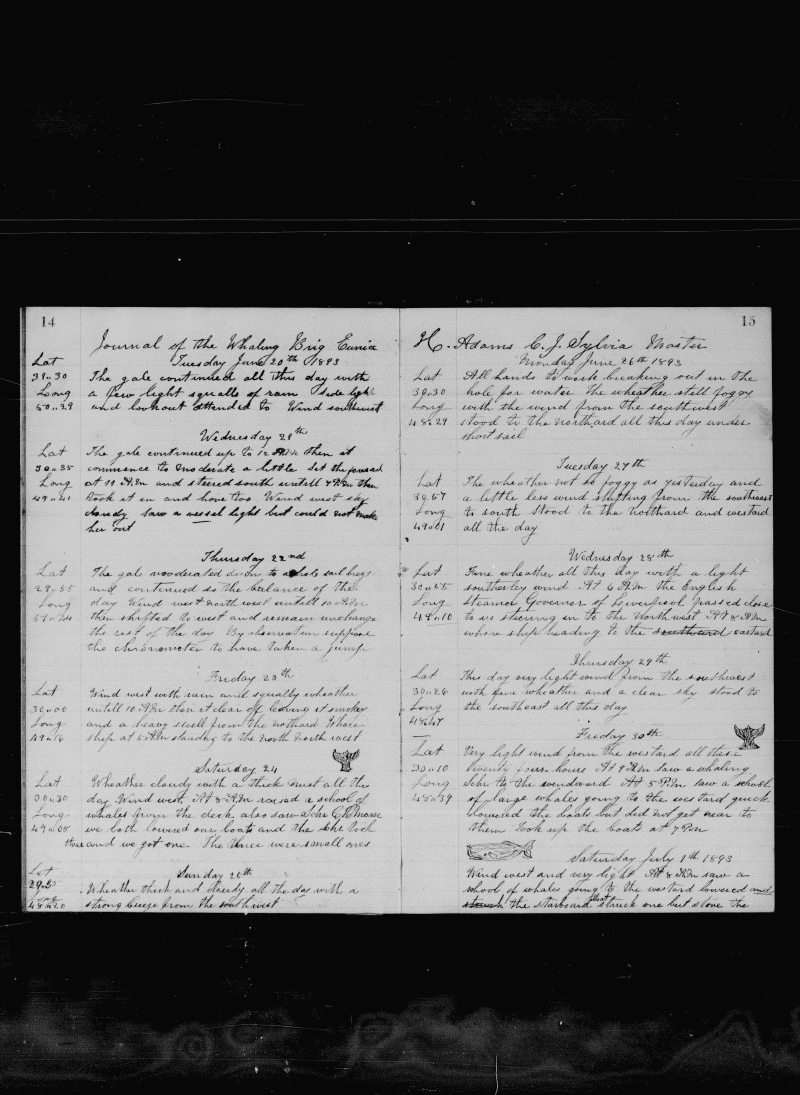 14
Journal of the Whaling Brig Eunice
Tuesday June 20th 1893
Lat
The gale continued all this day with
Long
a few light squalls of rain side light
and lookout attended to Wind southwest
Wednesday 21th
Lat
The gale continued up to 12 A.M. then it
30 " 35
commence to moderate a little Set the foresail
Long
at 11 A.M. and steered south untill 7 P.M. then
49 " 41
took it in and hove too Wind west sky
cloudy saw a vessel light but could not make
her out
Thursday 22nd
Lat
The gale moderated down to a whole sail breeze
29 " 55
and continued so the balance of the
Long
day Wind west north west untill 10 A.M.
then shifted to west and remain unchange
the rest of the day By observation suppose
the chronometer to have taken a jump
Friday 23th
Lat
Wind west with rain and squally wheather
30 " 00
untill 10 A.M. then it clear off leaving it smokey
Long
and a heavy swell from the nothard Whare
49 " 16
ship at 5 A.M. standing to the north north west
Saturday 24
Lat
Wheather cloudy with a thick mist all this
30 " 30
day Wind west, At 8 A.M. raised a school of
Long
whales from the deck also saw Schr E. R. Morse
49 " 05
we both lowered our boats and the Schr took
three and we got one. The three were small ones
Sunday 25th
Lat
29.5
Wheather thick and cloudy all the day with a
Long
48 " 20
strong breeze from the southwest
15
H. Adams C. J. Sylvia Master
Monday June 26th 1893
Lat
All hands to work breaking out in the
hole for water The wheather still foggy
Long
with the wind from the southwest
48 " 29
stood to the northard all this day under
short sail
Tuesday 27th
Lat
The wheather not so foggy as yesterday and
a little less wind shifting from the southwest
Long
to south stood to the nothard and westard
49 " 01
all the day
Wednesday 28th
Lat
Fine wheather all this day with a light
30 " 55
southerley wind At 6 A.M. the English
Long
steamer Governor of Liverpool passed close
48 " 10
to us steering in to the Northwest At 8 A.M.
whare ship heading to the southard eastard
Thursday 29th
Lat
This day very light wind from the southwest
30 " 26
with fine wheather and a clear sky stood to
Long
the southeast all this day
48 " 47
Friday 30th
Lat
Very light wind from the westard all these
30 " 10
twenty four hours At 9 A.M. saw a whaling
Long
Schr to the windward At 5 P.M. saw a school
48 " 39
of large whales going to the westard quick
lowered the boats but did not get near to
them Took up the boats at 7 P.M.
Saturday July 1th 1893
Wind west and very light At 8 A.M. saw a
school of whales going to the westard lowered and
struck the starboard boat struck one but stove the